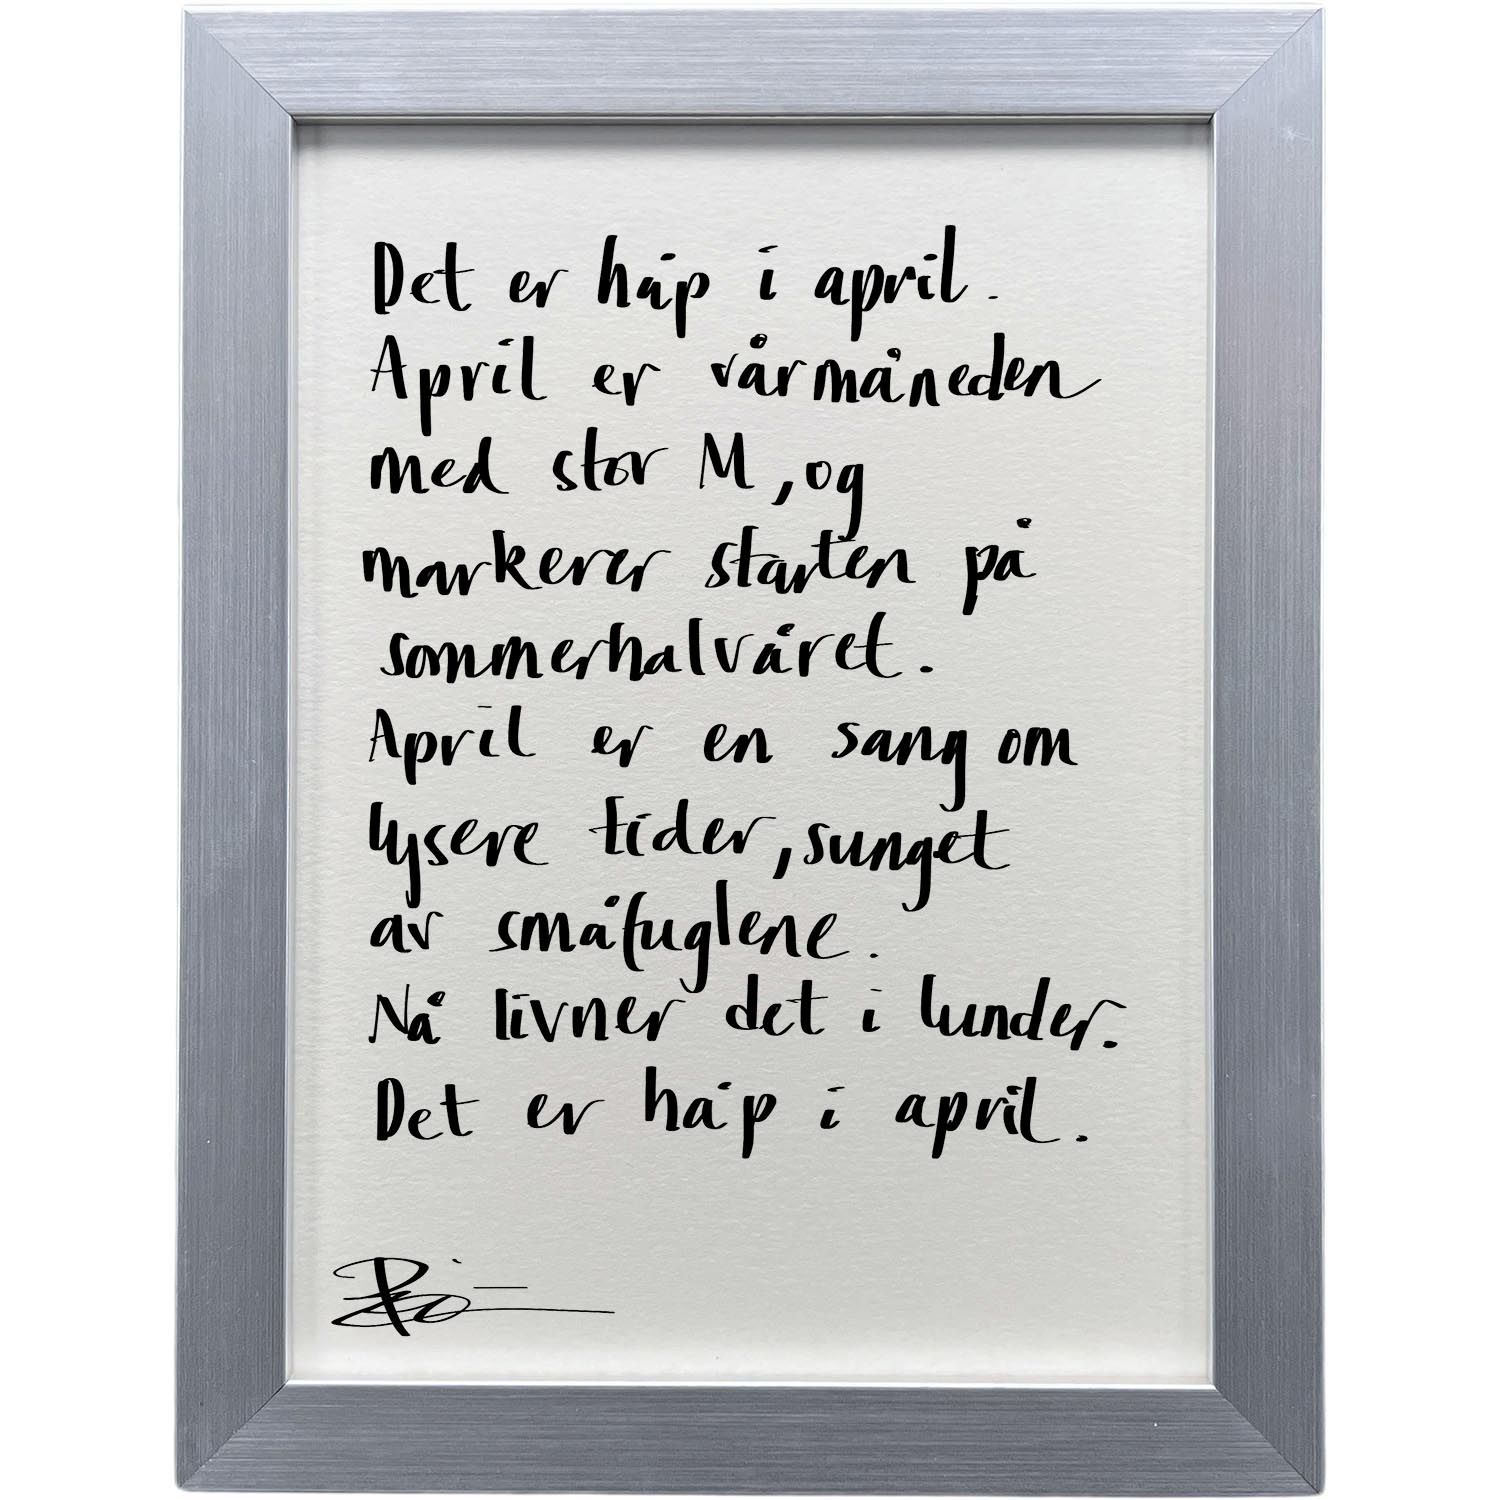 Det er håp i april.
April er vårmåneden
med stor M, og
markerer starten på
sommerhalvåret.
April er en sang om
lysere tider, sunget
av småfuglene.
Nå livner det i lunder.
Det er håp i april.